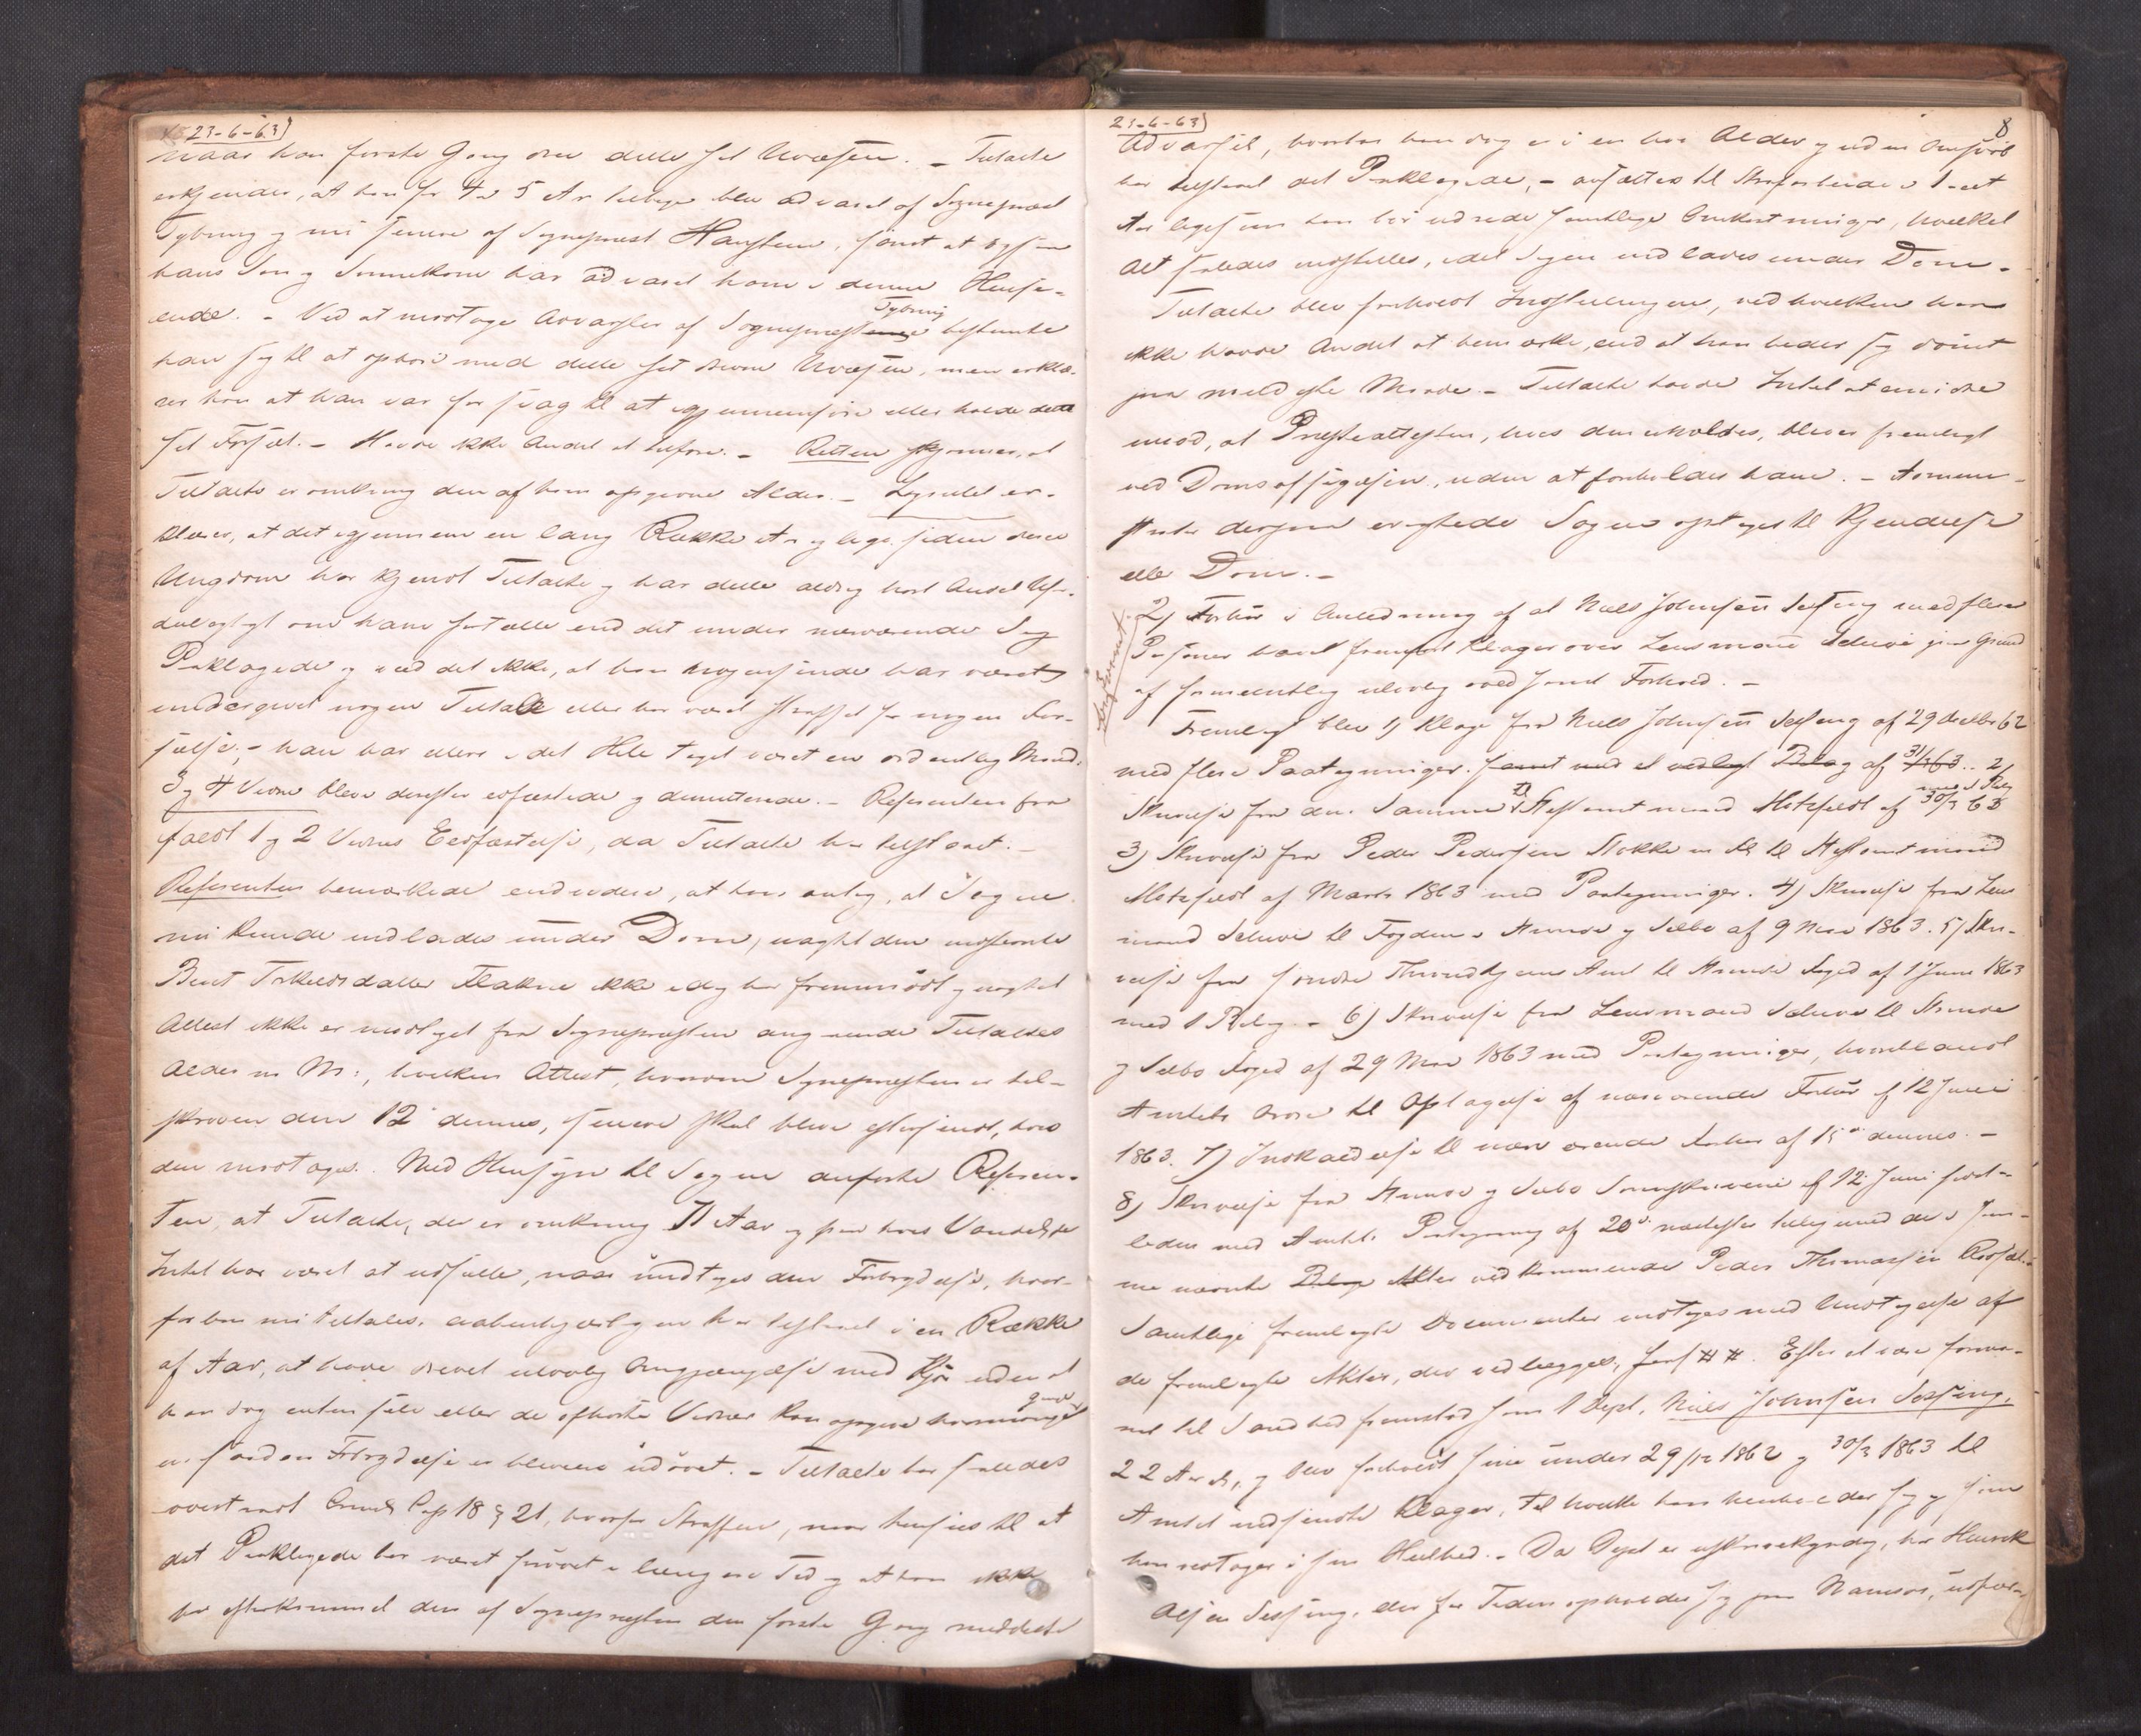 23-6-63)
naar han første Gang drev dette sit Uvæsen. – Tiltalte
erkjender, at han for 4 a 5 Aar tilbage blev advaret af Sognepræst
Tybring og nu senere af Sognepræst Hansteen, samt at ogsaa
hans Søn og Sønnekone har advaret ham i denne Hense-
ende. – Ved at modtage Advarsler af Sognepræst Tybring bestemte
han sig til at ophøre med dette sit Uvæsen, men erklæ-
rer han at han var for svag til at gjennemføre eller holde dette
sit Forsæt. – Havde ikke Andet at tilføre. – Retten skjønner, at
Tiltalte er omkring den af ham opgivne Alder. – Lagrettet er-
klærer, at det igjennem en lang Række Aar og lige siden deres
Ungdom har kjendt Tiltalte og har dette aldrig hørt Andet Uf-
delagtigt om ham fortælle end det under nærværende Sag
Paaklagede og ved det ikke, at han nogensinde har været
undergivet nogen Tiltale eller har været straffet for nogen For-
seelse; – han har ellers i det Hele taget været en ordentlig Mand.
3 og 4 Vidne bleve derefter edfæstede og demitterede. – Referenten fra
faldt 1 og 2 Vidnes Eedfæstelse, da Tiltalte har tilstaaet. –
Referenten bemærkede endvidere, at han antog, at Sagen
nu kunde indlades under Dom, uagtet den indstevnte
Bent Torkeldsdatter Flakne ikke idag har fremmødt og uagtet
Attest ikke er modtaget fra Sognepræsten angaaende Tiltaltes
Alder m M:, hvilken Attest, hvorom Sognepræsten er til-
skreven den 12 dennes, senere skal blive eftersendt, hvis
den modtages. Med Hensyn til Sagen anførte Referen-
ten, at Tiltalte, der er omkring 71 Aar og paa hvis Vandel
Intet har været at udsætte, naar undtages den Forbrydelse, hvor-
for han nu tiltales, aabenhjertigen har tilstaaet i en Række
af Aar, at have drevet ulovlig Omgjængelse med Kjør uden at
han dog enten selv eller de afhørte Vidner kan opgive hvormange Gange
en saadan Forbrydelse er bleven udøvet. – Tiltalte har saaledes
overtraadt Criml. Cap 18 § 21, hvorfor Straffen, naar hensees til at
det Paaklagede har været øvet i længere Tid og at han ikke
har efterkommet den af Sognepræsten den første Gang meddelte
23-6-63) 8
Advarsel, hvorhos han dog er i en høi Alder og uden Omsvøb
har tilstaaet det Paaklagede, – ansættes til Strafarbeide i 1 eet
Aar ligesom han bør udrede samtlige Omkostninger, hvilket
Alt saaledes indstilles, idet Sagen indlades under Dom. –
Tiltalte blev foreholdt Indstillingen, ved hvilken han
ikke havde Andet at bemærke, end at han beder sig dømt
paa mildeste Maade. – Tiltalte havde Intet at erindre
imod, at Præsteattesten, hvis den erholdes, bliver fremlagt
ved Domsafsigelsen, uden at foreholdes ham. –
derpaa Sagen optages til Kjendelse
eller Dom. –
2) Forhør i Anledning af at Niels Johnsen Selseng med flere
Personer have fremført Klager over Lensmand Schive paa Grund
af formeentlig ulovlig Forhold. –
Fremlagt blev 1) Klage fra Niels Johnsen Selseng af 29 Decbr 62
med flere Paategninger. samt med et vedlagt Bilag af 31/3 63. 2)
Skrivelse fra den Samme til Stiftamtmand Motzfeldt af 30/3 63 med 1 Bilag
3) Skrivelse fra Peder Pedersen Stokke til Stiftamtmand
Motzfeldt af Marts 1863 med Paategninger. 4) Skrivelse fra Lens
mand Schive til Fogden i Strinde og Selbo af 9 Mai 1863. 5) Skri-
velse fra søndre Throndhjems Amt til Strinde Foged af 1 Juni 1863
med 1 Bilag. – 6) Skrivelse fra Lensmand Schive til Strinde
og Selbo Foged af 29 Mai 1863 med Paategninger, hvoriblandt
Amtets Ordre til Optagelse af nærværende Forhør af 12 Juni
1863. 7) Indkaldelse til nærværende Forhør af 15de dennes. –
8) Skrivelse fra Strinde og Selbo Sorenskriveri af 12 Juni sidst-
leden med Amtets Paategning af 20de næstefter tilligemed de i sam-
me nævnte Bilage Akter vedkommende Peder Thomassen
Samtlige fremlagte Documenter modtages med Undtagelse af
de fremlagte Akter, der vedlægges, ##. Efter at være forma-
net til Sandhed fremstod som 1 Dept. Niels Johnsen Selseng,
22 Aar gl., og blev foreholdt sine under 29/12 1862 og 30/3 1863 til
Amtet indsendte Klager, til hvilke han henholder sig og som
han vedtager i sin Heelhed. – Da Dept er uskrivekyndig, har Henrik
Olsen Selseng, der for Tiden opholder sig paa Namsos, udfær-